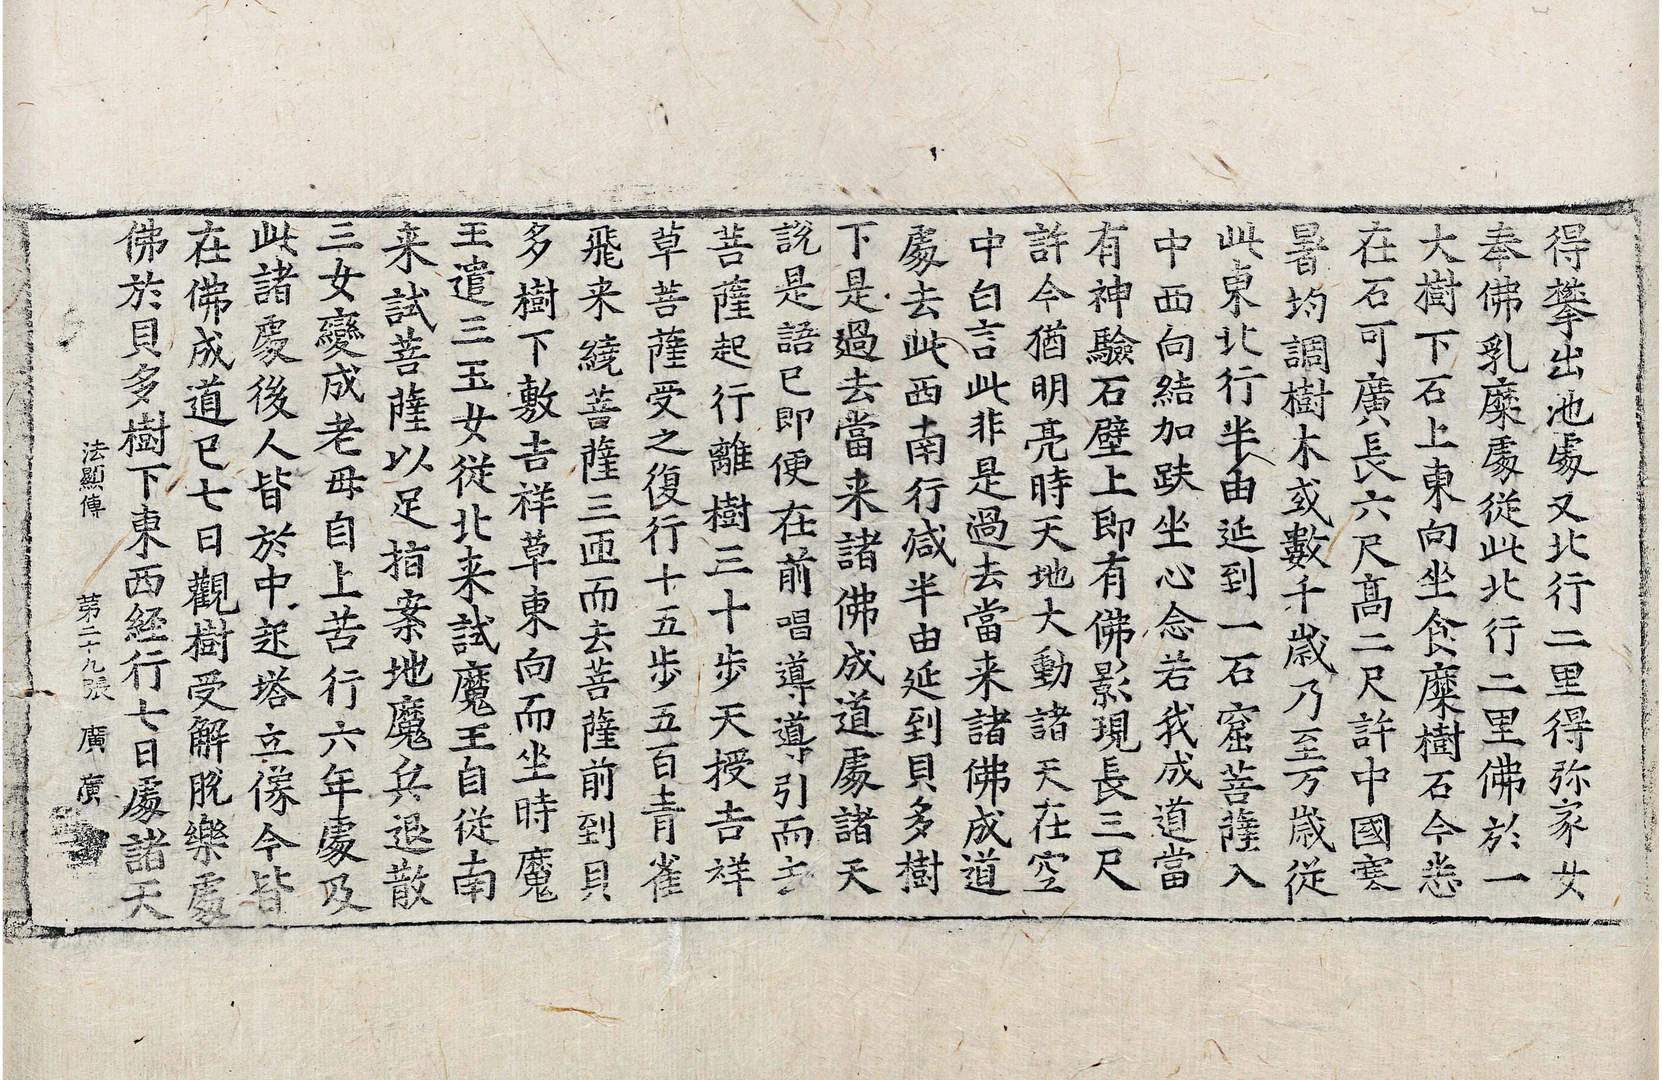 得攀出池處又北行二里得弥家女
奉佛乳糜處從此北行二里佛於一
大樹下石上東向坐食糜樹石今悉
在石可廣長六尺高二尺許中國寒
暑均調樹木或數千歲乃至万歲從
此東北行半由延到一石窟菩薩入
中西向結加趺坐心念若我成道當
有神驗石壁上即有佛影現長三尺
許今猶明亮時天地大動諸天在空
中白言此非是過去當来諸佛成道
處去此西南行減半由延到貝多樹
下是過去當来諸佛成道處諸天
說是語已即便在前唱導導引而去
菩薩起行離樹三十步天授吉祥
草菩薩受之復行十五步五百青雀
飛来繞菩薩三匝而去菩薩前到貝
多樹下敷吉祥草東向而坐時魔
王遣三玉女從北来試魔王自從南
来試菩薩以足指案地魔兵退散
三女變成老母自上苦行六年處及
此諸處後人皆於中起塔立像今皆
在佛成道已七日觀樹受解脫樂處
佛於貝多樹下東西經行七日處諸天
法顯傳 第二十九張 廣 廣